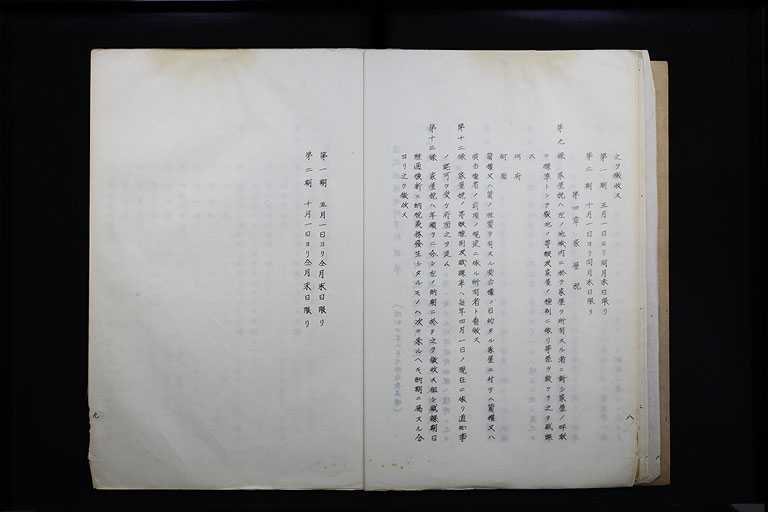 之ヲ徴收ス
第一期 五月一日ヨリ同月末日限リ
第二期 十月一日ヨリ同月末日限リ
第四章 家屋税
第九條 家屋税ハ左ノ地域內ニ於テ家屋ヲ所有スル者ニ對シ家屋ノ坪數
ヲ標準トシテ敷地ノ等級及家屋ノ種別ニ依リ等差ヲ設ケテ之ヲ賦課
ス
質權又ハ質ノ性質ヲ有スル典當權ノ目的タル家屋ニ付テハ質權又ハ
典當權者ノ前項ノ規定ニ依ル所有者ト看做ス
第十二條 家屋税ノ等級種別及賦課率ハ每年四月一日ノ現在ニ依リ道知事
ノ認可ヲ受ケ府尹之ヲ定ム
第十三條 家屋税ハ年額ヲ二分シ左ノ納期ニ於テ之ヲ徴收ス但シ賦課期日
經過後新ニ納税義務發生シタルモノハ次ニ來ルヘキ納期ニ屬スル分
ヨリ之ヲ徴收ス
八
第一期 五月一日ヨリ仝月末日限リ
第二期 十月一日ヨリ仝月末日限リ
九